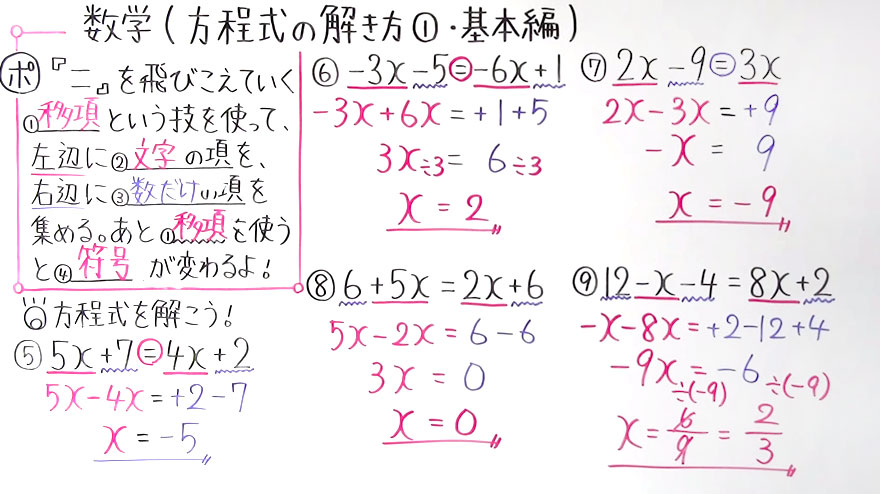 数学(方程式の解き方①・基本編)
ポ『=』を飛びこえていく
①移項という技を使って、
左辺に②文字の項を、
右辺に③数だけの項を
集める。あと①移項を使う
と④符号が変わるよ!
方程式を解こう!
⑤ 5x+7=4x+2
5x-4x=+2-7
x=-5
⑥ -3x-5=-6x+1
-3x+6x=+1+5
3x÷3=6÷3
x=2
⑦ 2x-9=3x
2x-3x=+9
-x=9
x=-9
⑧ 6+5x=2x+6
5x-2x=6-6
3x=0
x=0
⑨ 12-x-4=8x+2
-x-8x=+2-12+4
-9x=-6
÷(-9) ÷(-9)
x=6/9=2/3